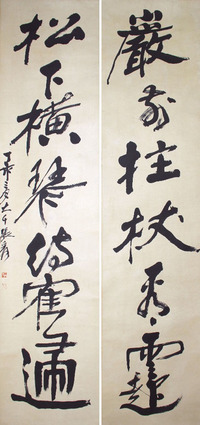 巖前拄杖看雲起
松下橫琴待鶴歸
丁卯 大千張爰